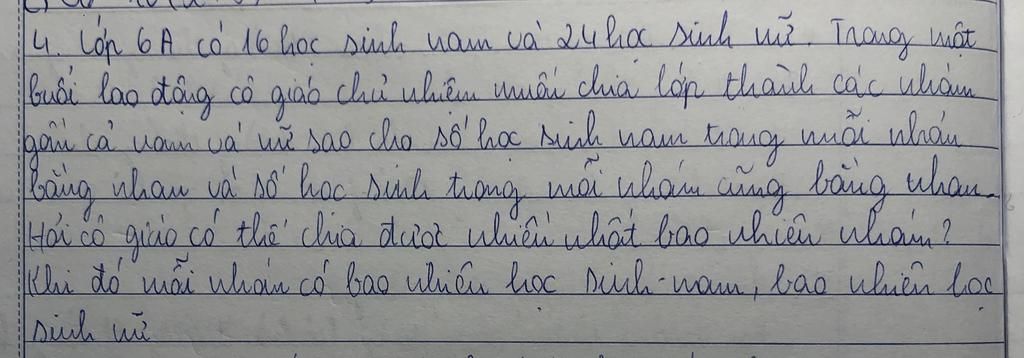 4. Lớp 6A có 16 học sinh nam và 24 học sinh nữ. Trong một
buổi lao động cô giáo chủ nhiệm muốn chia lớp thành các nhóm
gồm cả nam và nữ sao cho số học sinh nam trong mỗi nhóm
bằng nhau và số học sinh trong mỗi nhóm cũng bằng nhau.
Hỏi cô giáo có thể chia được nhiều nhất bao nhiêu nhóm?
Khi đó mỗi nhóm có bao nhiêu học sinh nam, bao nhiêu học
sinh nữ